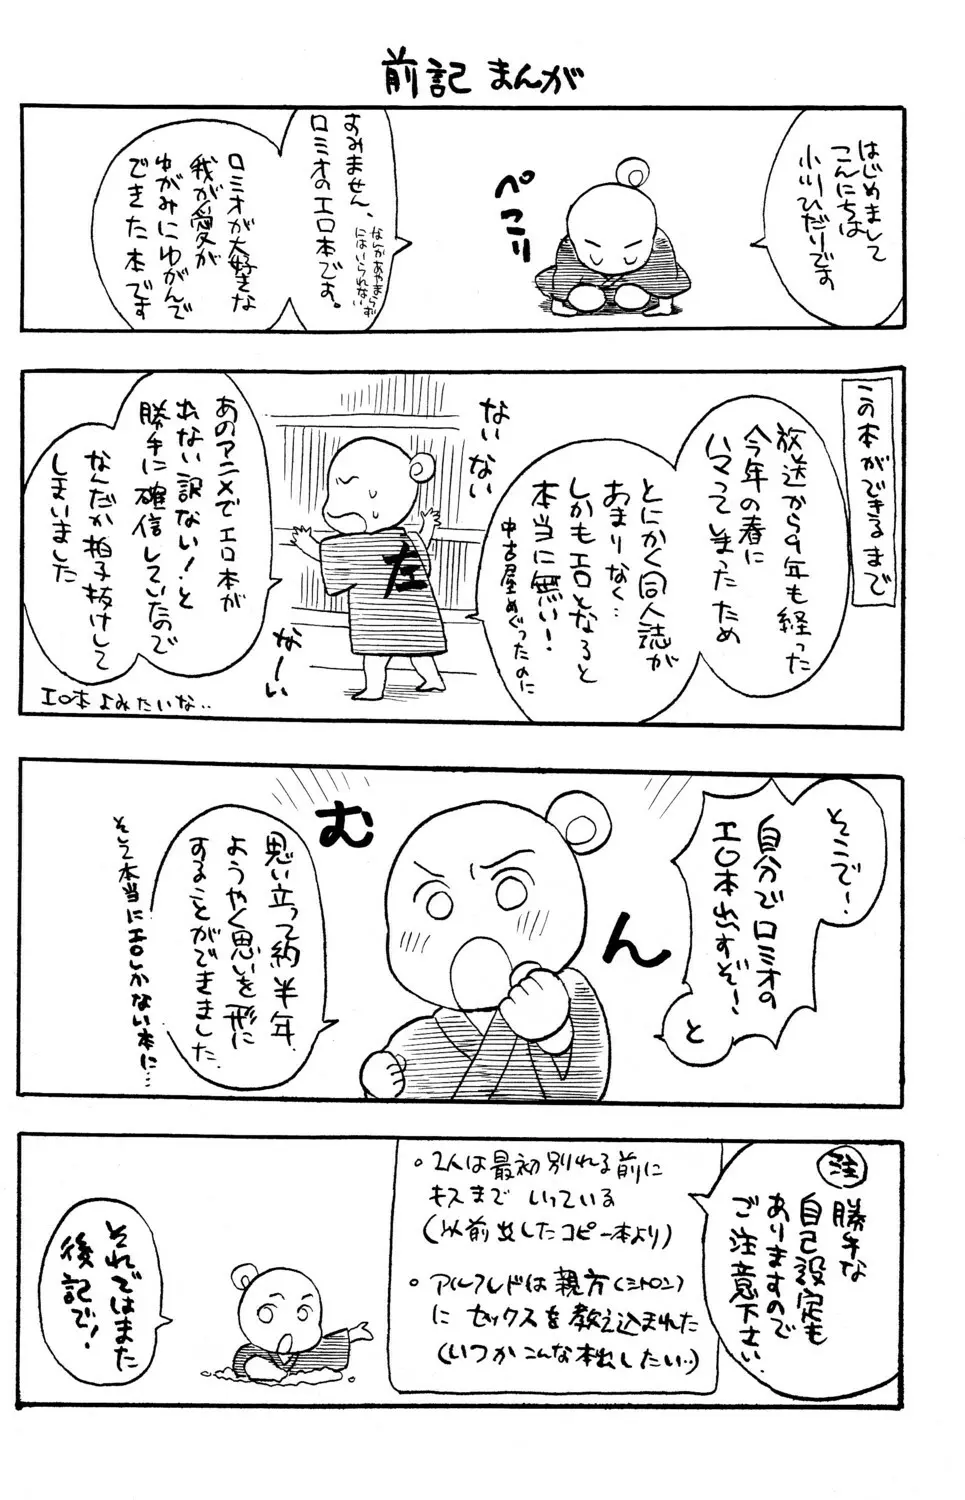 前記まんが
はじめまして
こんにちは
小川ひだりです
ぺこり
すみません、
ロミオのエロ本です。
なんかあやまらず
にはいられない
ロミオが大好きな
我が愛が
ゆがみにゆがんで
できた本です
この本ができるまで
放送から9年も経った
今年の春に
ハマってしまったため
とにかく同人誌が
あまりなく…
しかもエロとなると
本当に無い!
中古屋めぐったのに
ないない
なーい
左
あのアニメでエロ本が
出ない訳ない!と
勝手に確信していたので
なんだか拍子抜けして
しまいました
エロ本よみたいな‥
そこで!
自分でロミオの
エロ本出すぞ!
と
むん
思い立って約半年
ようやく思いを形に
することができました
そして本当にエロしかない本に…
注
勝手な
自己設定も
ありますので
ご注意下さい
・2人は最初別れる前に
キスまでいっている
(以前出したコピー本より)
・アルフレドは親方(ミトロン)
にセックスを教え込まれた
(いつかこんな本出したい‥)
それではまた
後記で!